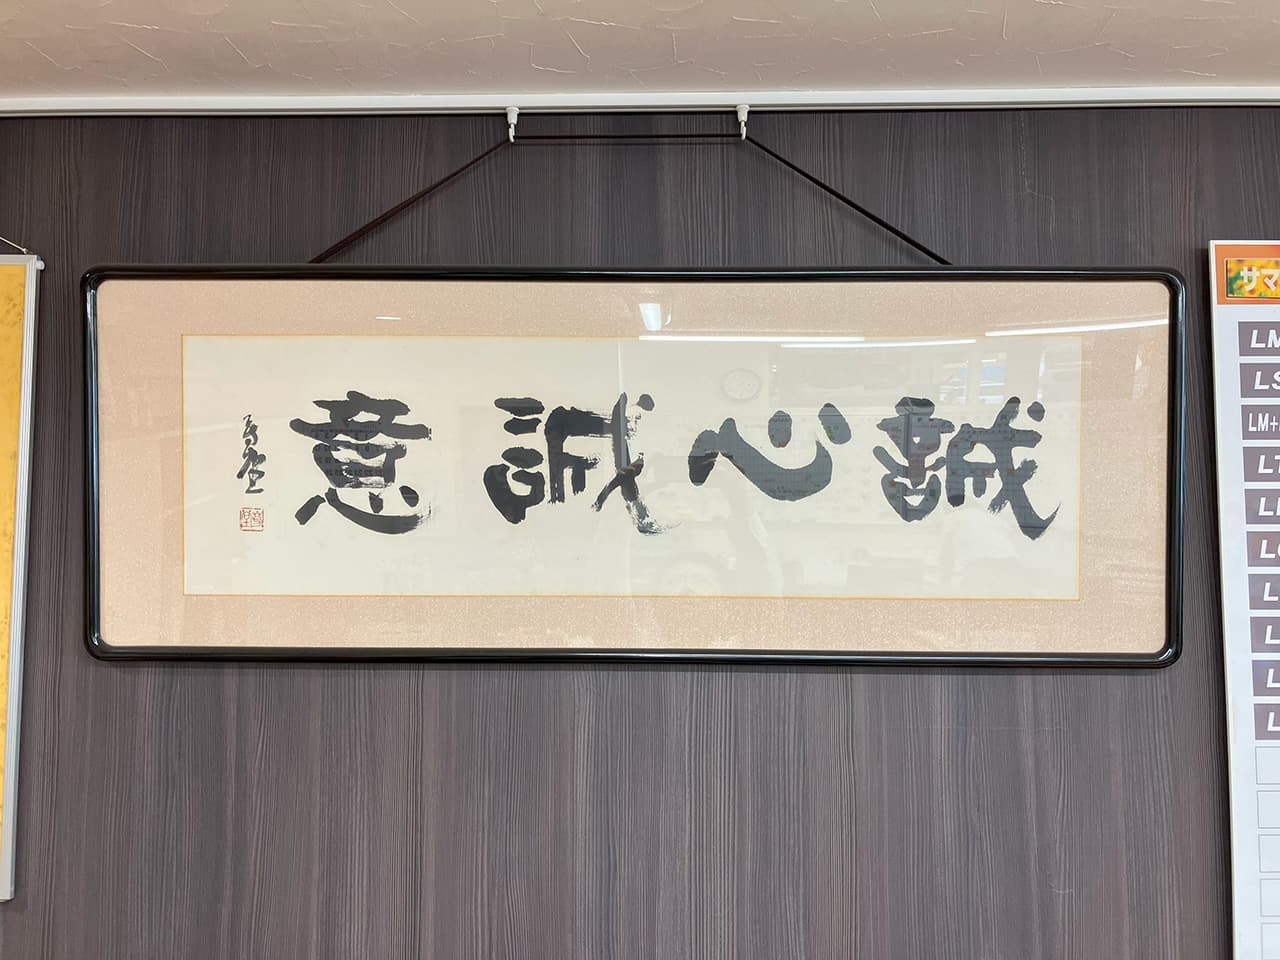 誠心誠意
サマ
LM
LS
LM+